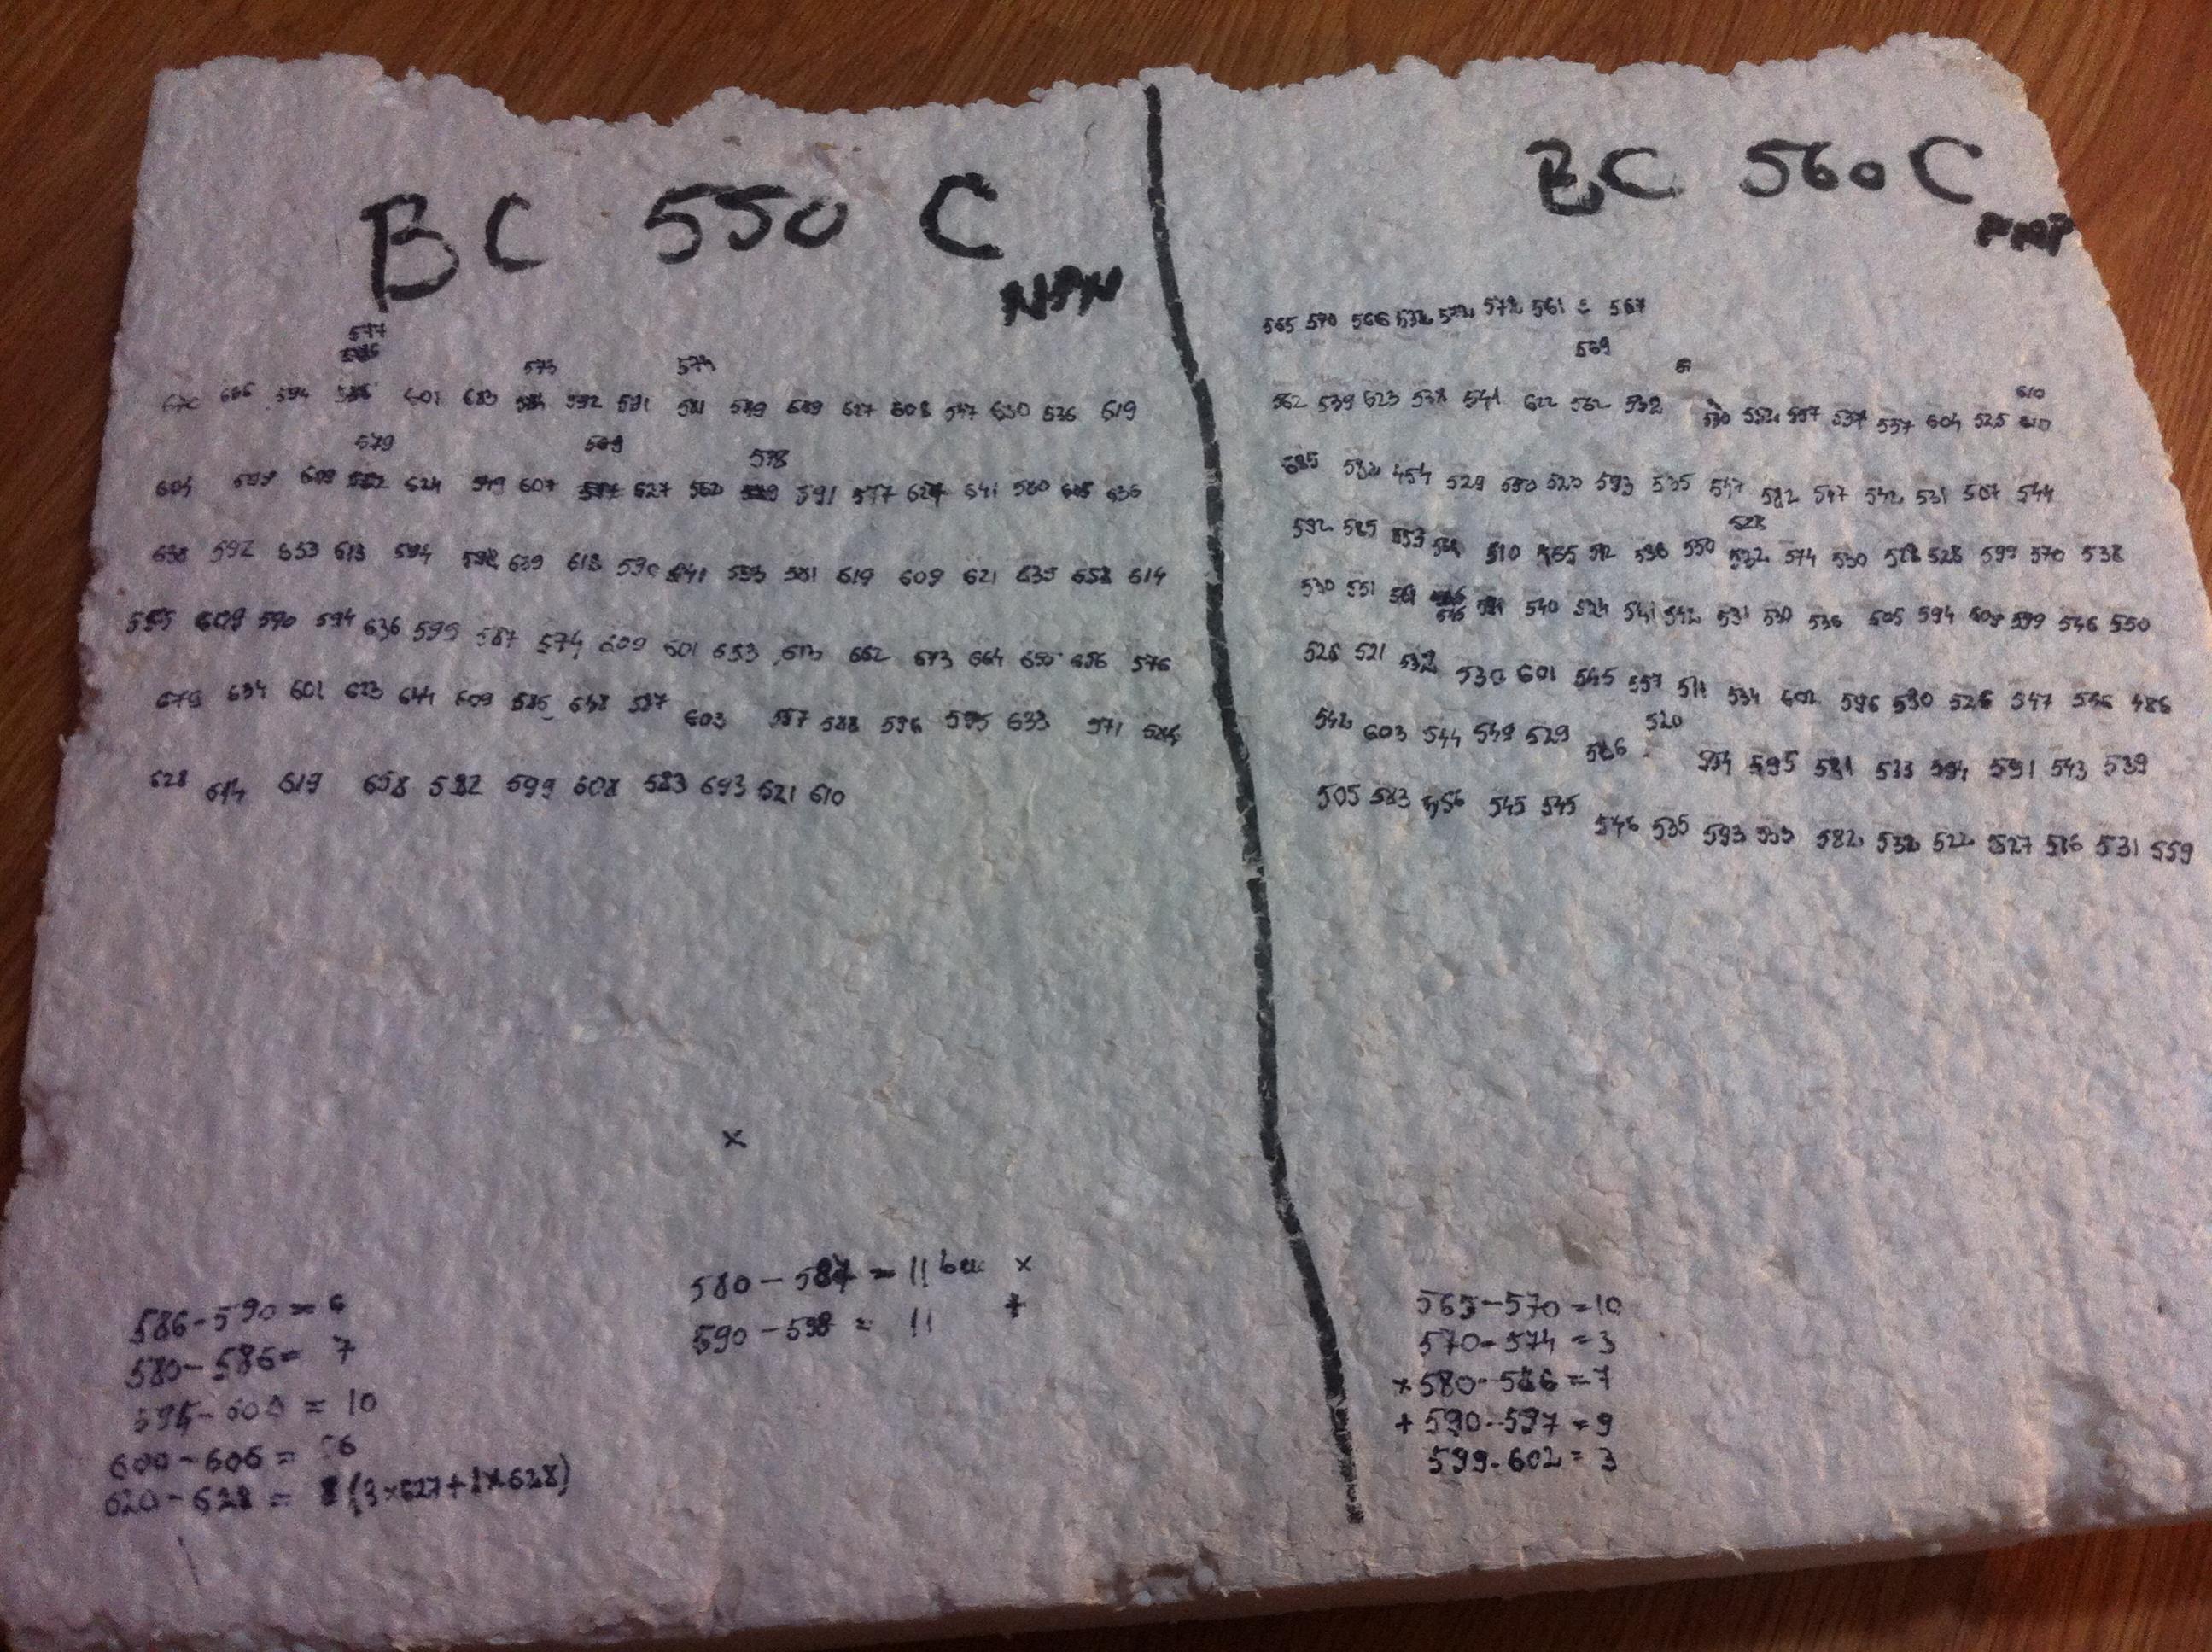 BC 550 C
NPN
577
573 574
670 594 601 592 591 581 589 609 627 608 547 630 636 619
579 569 598
604 609 624 549 607 627 562 591 577 641 580 605 636
638 592 653 613 594 592 639 613 590 641 593 581 619 609 621 635 658 614
595 609 590 594 636 599 587 574 609 601 653 613 662 673 664 655 656 576
679 634 601 623 644 609 585 648 587 603 557 588 596 595 633 571 584
628 614 619 658 592 599 608 583 693 621 610
x
586-590=6
580-586=7
595-600=10
600-606=6
620-628=8(3x627+1x628)
580-587=11 x
590-598=11 +
BC 560 C
PNP
565 570 566 532 572 572 561 567
569
610
562 539 623 538 541 622 562 532 552 557 537 537 604 525
585 582 454 529 590 523 593 535 547 582 547 542 531 507 544
528
592 585 553 510 565 512 536 550 532 574 530 528 528 599 570 538
530 551 561 540 524 541 542 531 530 536 605 594 608 599 546 550
526 521 532 530 601 545 557 511 534 602 596 590 526 547 546 486
520
542 603 544 549 529 586 554 595 581 533 594 591 543 539
505 583 556 545 545 546 535 593 533 582 532 522 527 516 531 559
565-570=10
570-574=3
x580-586=7
+590-597=9
599-602=3